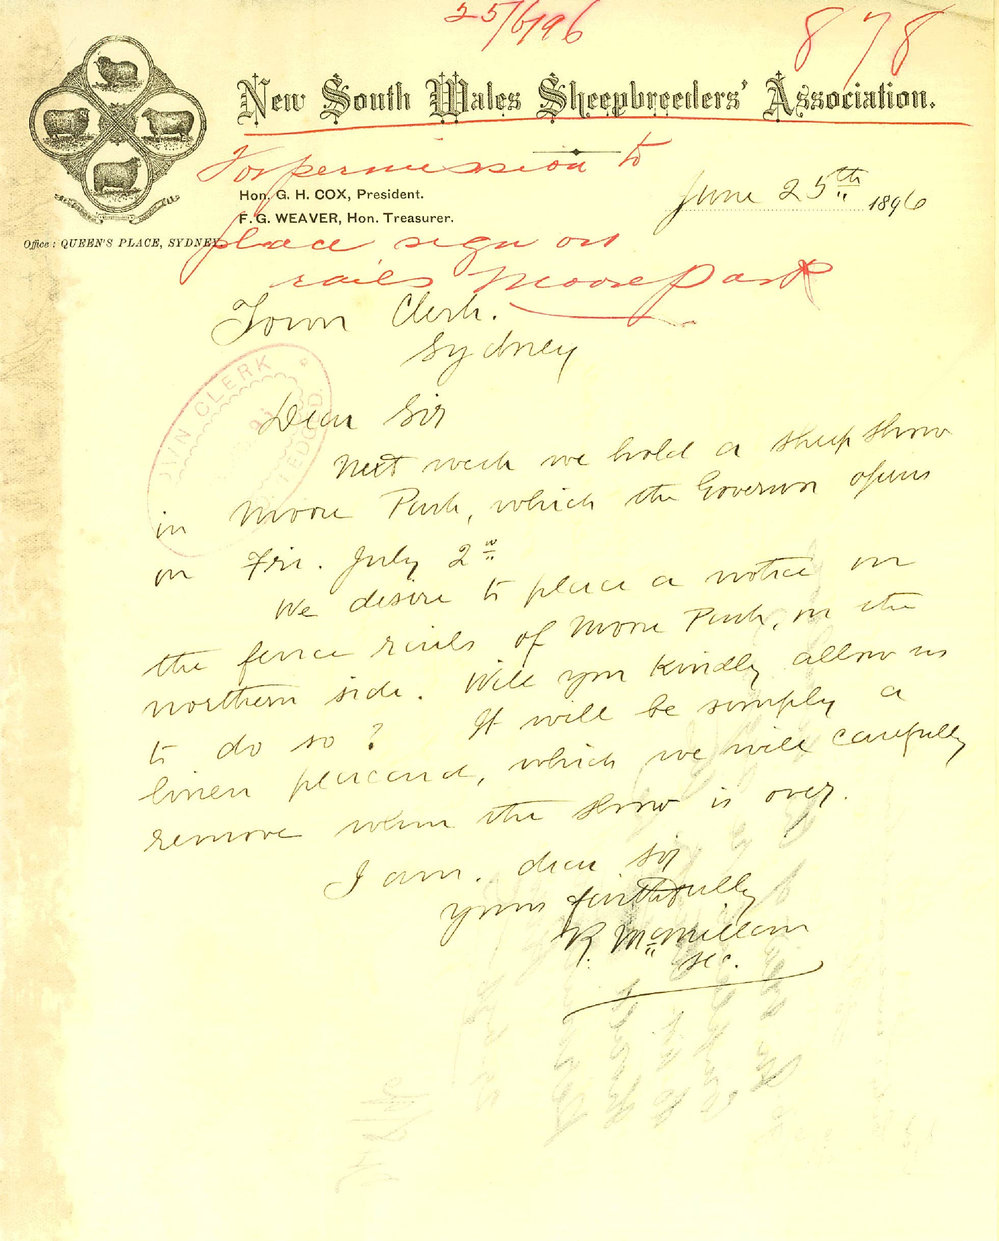 25/6/96
878
New South Wales Sheepbreeders' Association.
For permission to
Hon. G. H. COX, President.
F. G. WEAVER, Hon. Treasurer.
June 25th 1896
Office: QUEEN'S PLACE, SYDNEY
place sign on
rails Moore Park
Town Clerk.
Sydney
TOWN CLERK
Dear Sir
Next week we hold a sheep show
in Moore Park, which the Governor opens
on Fri. July 2nd
We desire to place a notice on
the fence rails of Moore Park, on the
northern side. Will you kindly allow us
to do so? It will be simply a
linen placard, which we will carefully
remove when the show is over.
I am. dear sir
yours faithfully
R. McMillan
sec.